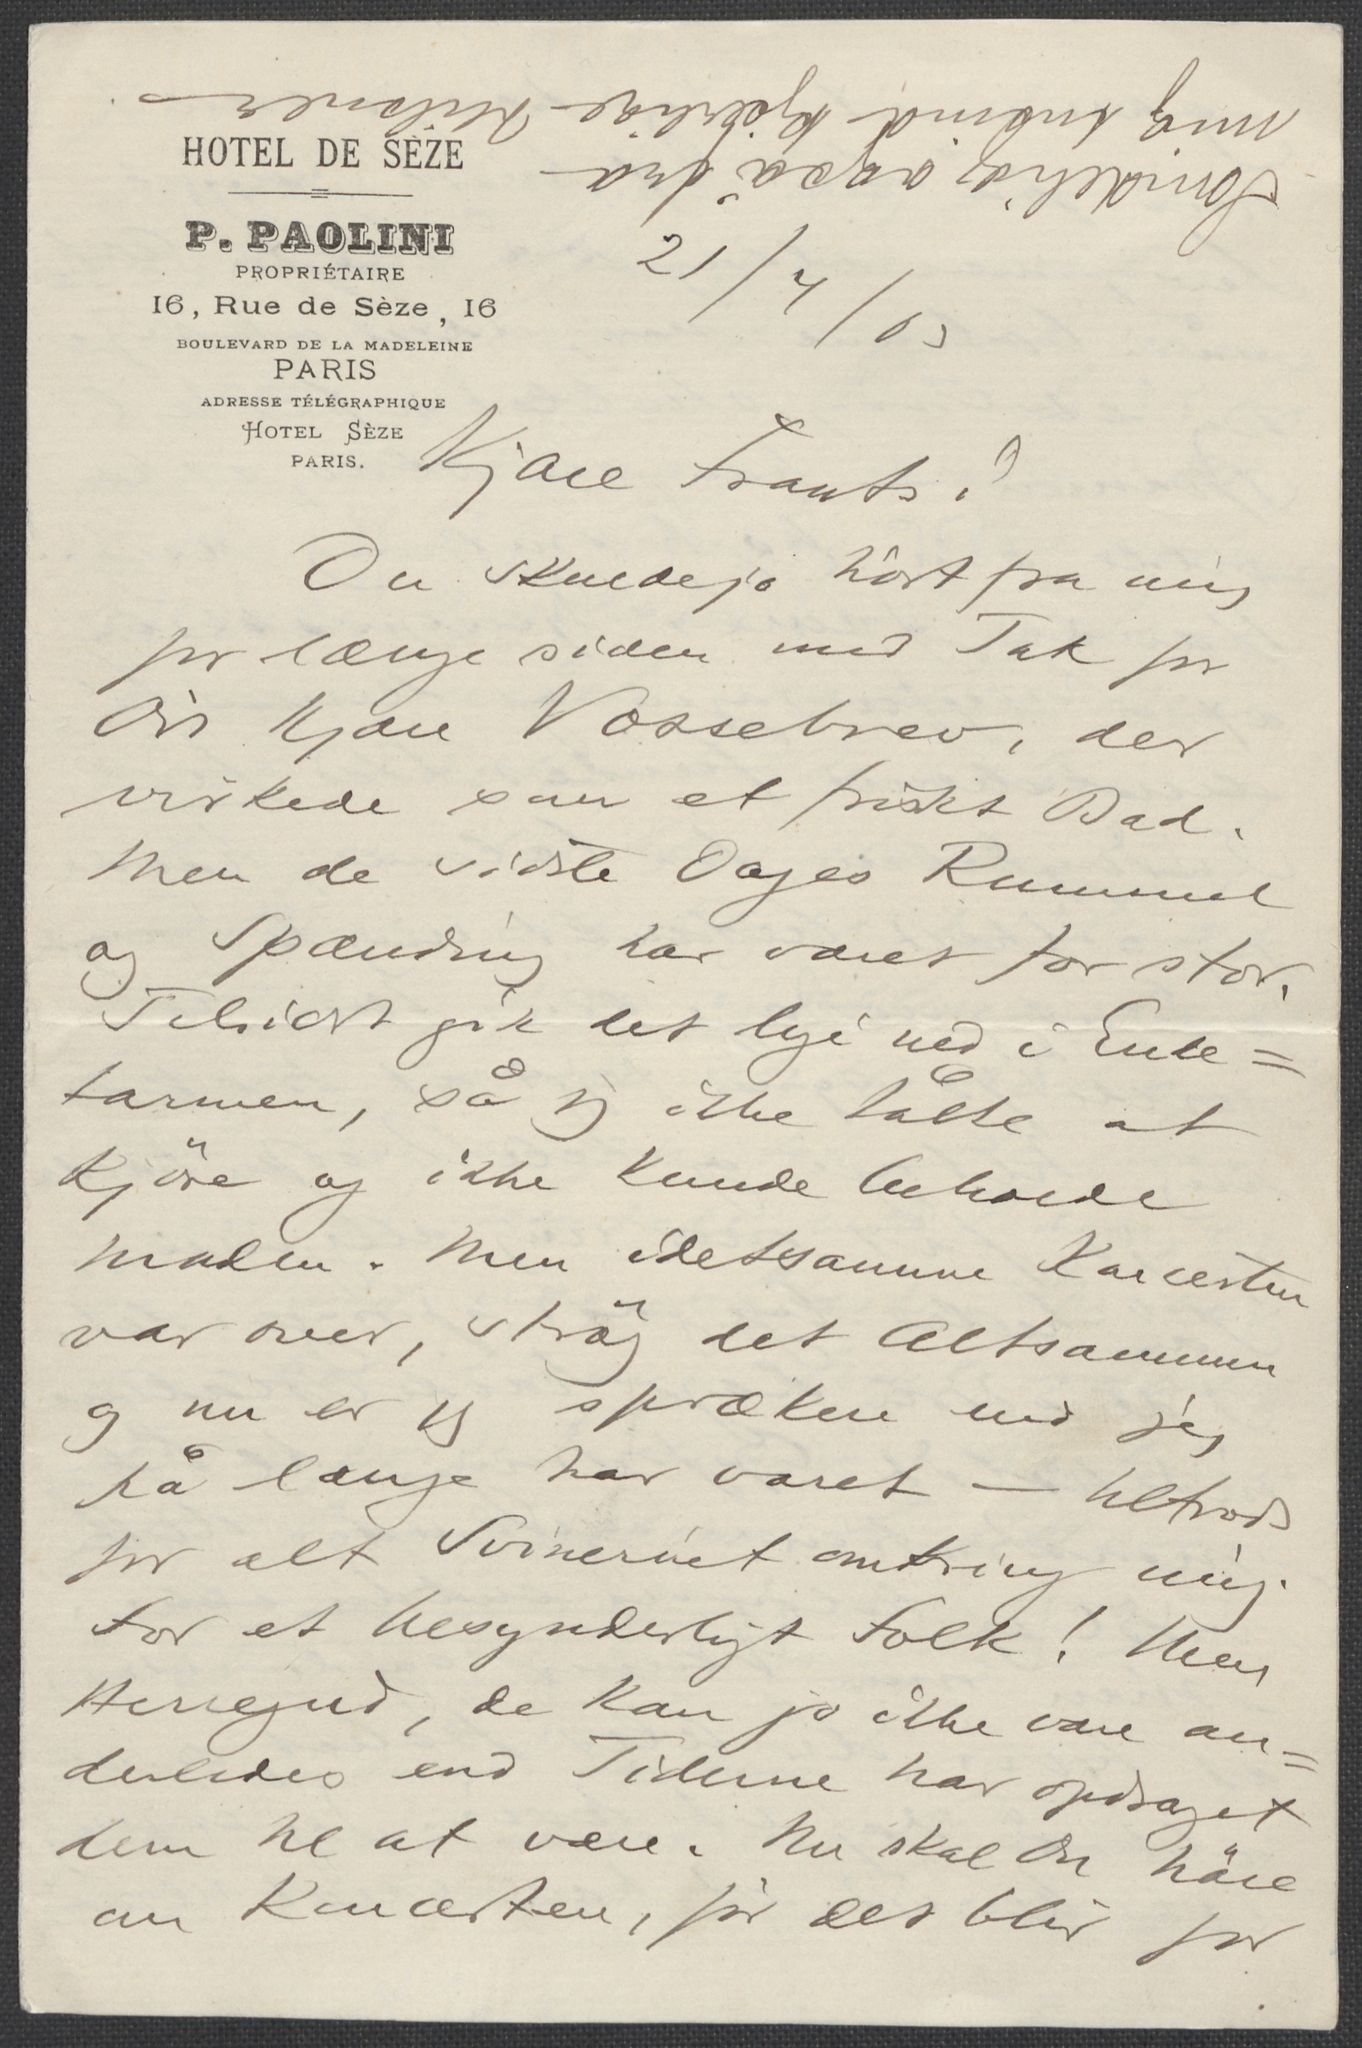 HOTEL DE SÈZE
P. PAOLINI
PROPRIÉTAIRE
16, Rue de Sèze, 16
BOULEVARD DE LA MADELEINE
PARIS
ADRESSE TÉLÉGRAPHIQUE
HOTEL SÈZE
PARIS.
21/4/03
Kjære Frants!
Du skulde jo hört fra mig
for længe siden med Tak for
Dit kjære Vossebrev, der
virkede som et friskt Bad.
Men de sidste Dages Rummel
og Spænding har været for stor.
Tilsidst gik det lige ned i Ende=
tarmen, så jeg ikke tålte at
kjöre og ikke kunde beholde
maden. Men idetsamme Koncerten
var over, strög det Altsammen
og nu er jeg sprækere end jeg
på længe har været — tiltrods
for alt Svineriet omkring mig.
For et besynderligt Folk! Men
Herregud, de kan jo ikke være an=
derledes end Tiderne har opdraget
dem til at være. Nu skal Du höre
om Koncerten, för det blir for
også fra
mig kjærlige Hilsner